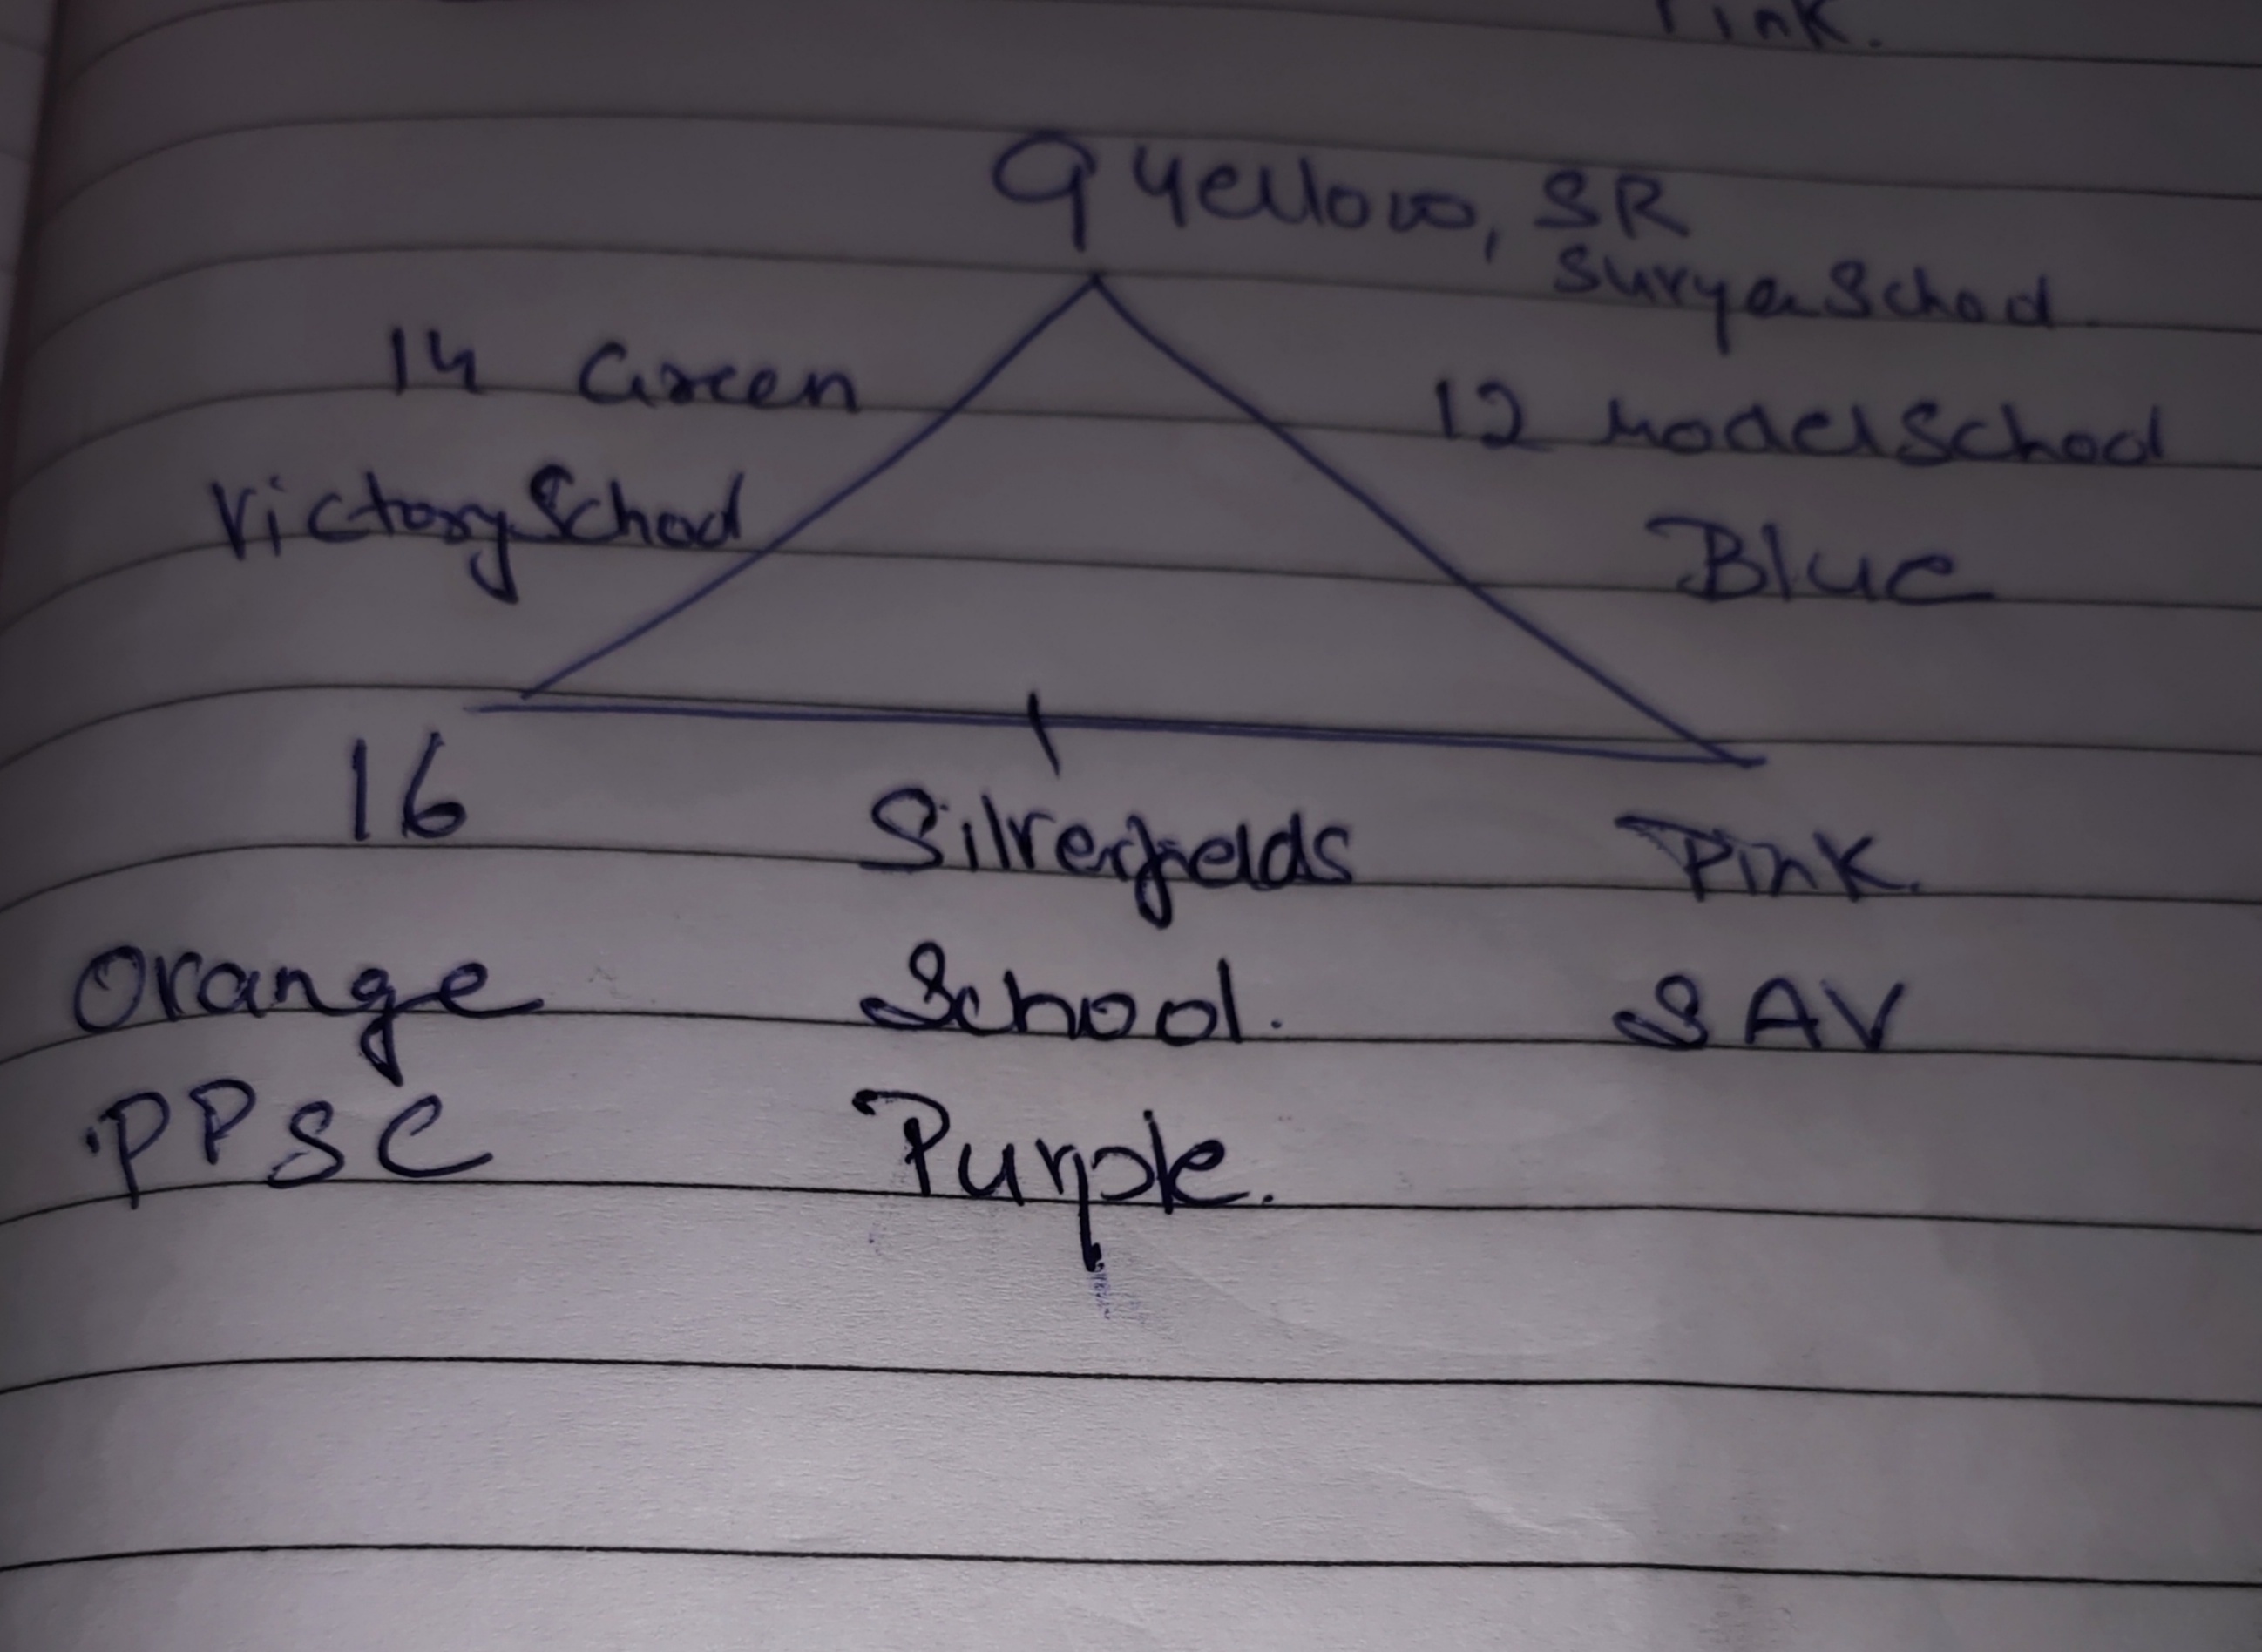 Pink.
9 Yellow, SR
Surya School
14 Green
12 Model School
Victory School
Blue
16 Silverfields Pink.
Orange School. SAV
PPSC Purple.